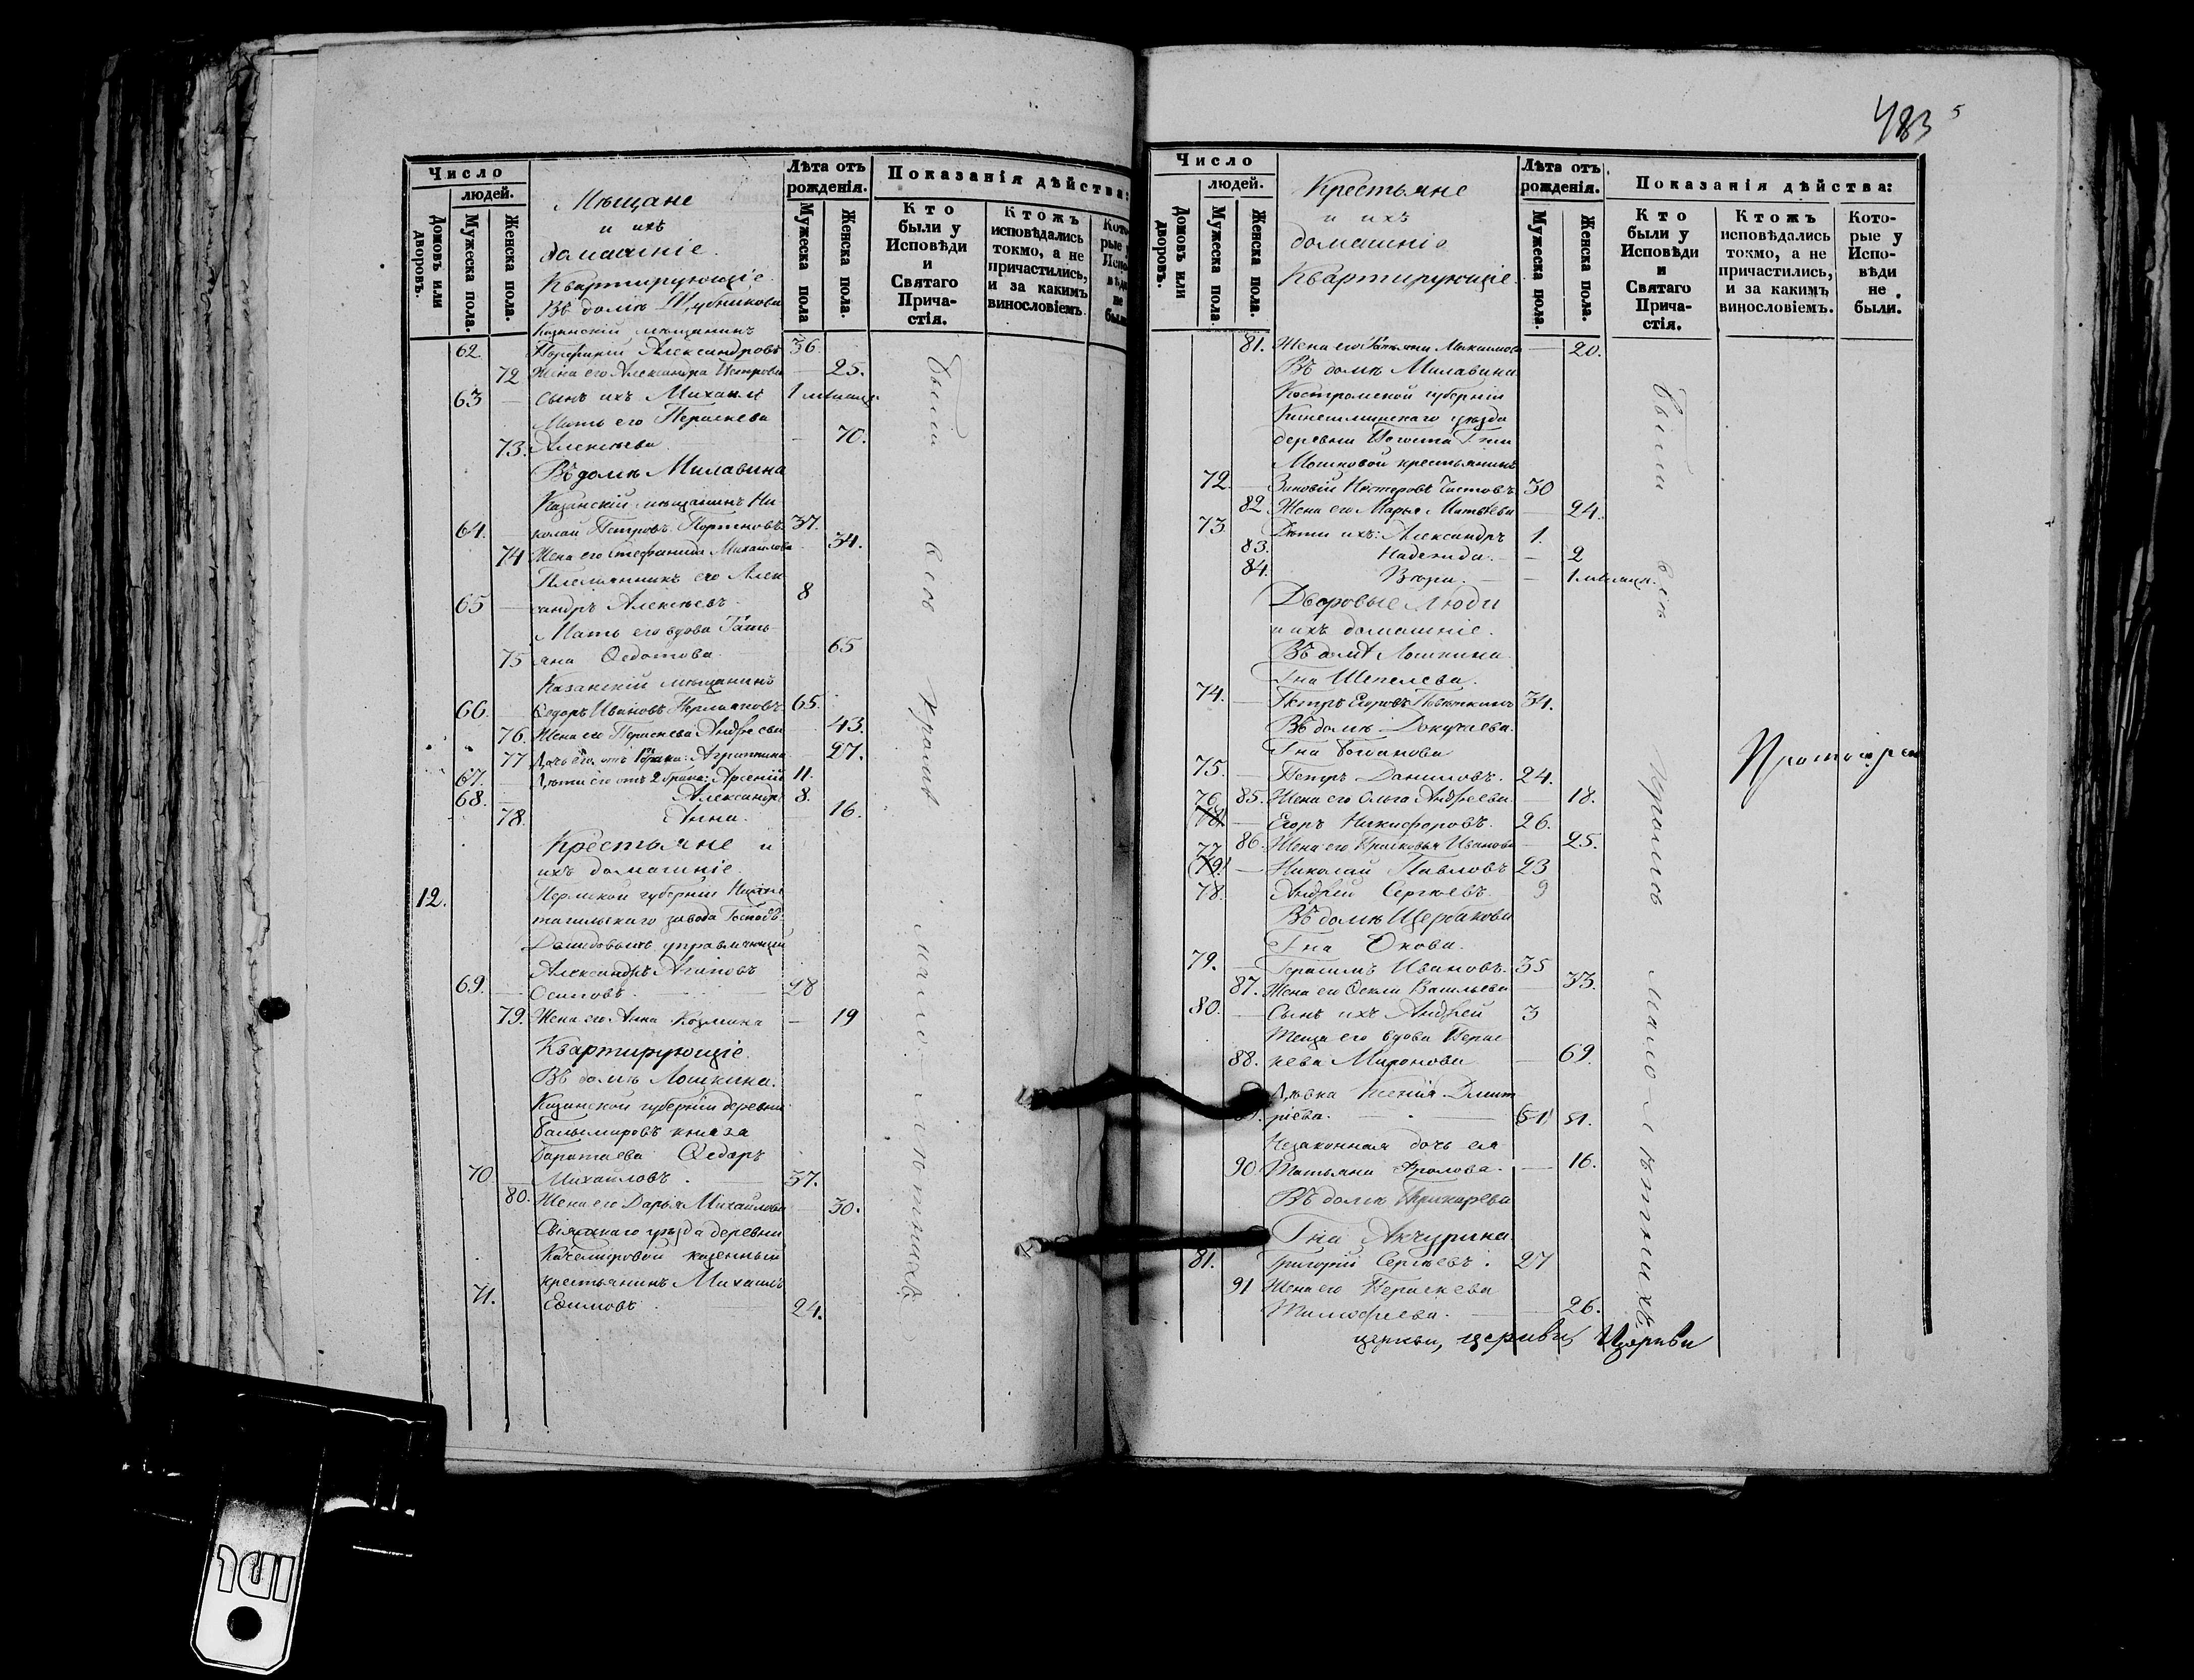 Число
людей.
Домовъ или дворовъ.
Мужеска пола.
Женска пола.
Мѣщане
и ихъ
домашніе.
Квартирующіе.
Въ домѣ
Лѣта отъ рожденія.
Мужеска пола
Женска пола.
Показанія дѣйства:
Кто были у Исповѣди и Святаго Причастія.
Ктожъ исповѣдались токмо, а не причастились, и за какимъ винословіемъ.
Казанскій мѣщанинъ
62. Порфирій Александровъ 36.
72 Жена его Александра Петрова — 25.
63 — Сынъ ихъ Михаилъ 1 мѣсяцъ
Мать его Параскева
73. Алексѣева — 70.
Въ домѣ Милавина
Казанскій мѣщанинъ Ни-
64. колай Петровъ Портновъ 37.
74 Жена его Стефанида Михайлова 34.
Племянникъ его Алек
65 — сандръ Алексѣевъ 8
Мать его вдова Тать-
75 яна Ѳедотова 65
Казанскій мѣщанинъ
66. Ѳедоръ Ивановъ 65.
76. Жена его Параскева Андреева 43.
77 Дочь его отъ 1 брака: Агрипина 27.
67. Дѣти его отъ 2 брака: Арсеній 11.
68. Александръ 8.
78. Анна. 16.
Крестьяне и
ихъ домашніе.
12. Пермской губерніи Нижне
тагильскаго завода Господъ
Демидовыхъ управляющій
Александръ Агаповъ
69. — Осиповъ. 28
79. Жена его Анна Козмина — 19
Квартирующіе.
Въ домѣ Лошкина.
Казанской губерніи деревни
князя
Баратаева Ѳедоръ
70 — Михайловъ. 37.
80. Жена его Дарья Михайлова 30.
Свіяжскаго уѣзда деревни
казенный
крестьянинъ Михаилъ
71. Ефимовъ 24.
были всѣ кромѣ малолѣтныхъ
483 5
Число
людей.
Домовъ или дворовъ.
Мужеска пола.
Женска пола.
Крестьяне
и ихъ
домашніе
Квартирующіе.
Лѣта отъ рожденія.
Мужеска пола.
Женска пола.
Показанія дѣйства:
Кто были у Исповѣди и Святаго Причастія.
Ктожъ исповѣдались токмо, а не причастились, и за какимъ винословіемъ.
Которые у Исповѣди не были.
81. Жена его Татьяна Максимова — 20.
Въ домѣ Милавина
Костромской губерніи
Кинешминскаго уѣзда
деревни Погоста Гжи
Мошковой крестьянинъ
72 Зиновій Нестеровъ Чистовъ 30
82 Жена его Марья Матвѣева — 24.
73 Дѣти ихъ: Александръ 1.
83. Надежда. — 2
84. Вѣра. — 1 мѣсяц.
Дворовые люди
и ихъ домашніе.
Въ домѣ Лошкина
Гна Шепелева.
74. — Петръ Егоровъ 34.
Въ домѣ Докучаева.
Гна
75. — Петръ Даниловъ. 24.
85. Жена его Ольга Андреева — 18.
76 — Егоръ Никифоровъ. 26.
86. Жена его Прасковья Иванова — 25.
77 — Николай Павловъ 23
78. Андрей Сергѣевъ 9
Въ домѣ Щербакова
Гна
79. — Герасимъ Ивановъ. 35
87. Жена его Ѳекла Васильева — 33.
80. — Сынъ ихъ Андрей 3
Теща его вдова Парас
88. кева Миронова — 69.
Дѣвка Ксенія Дмит
ріева. (51) 51.
Незаконная дочь ея
90. Татьяна Фролова. — 16.
Въ домѣ
Гна Акчурина
81. Григорій Сергѣевъ. 27
91 Жена его Параскева
Тимофеева. — 26.
были всѣ кромѣ малолѣтнихъ
Протоіерей
церкви, церкви, Церкви